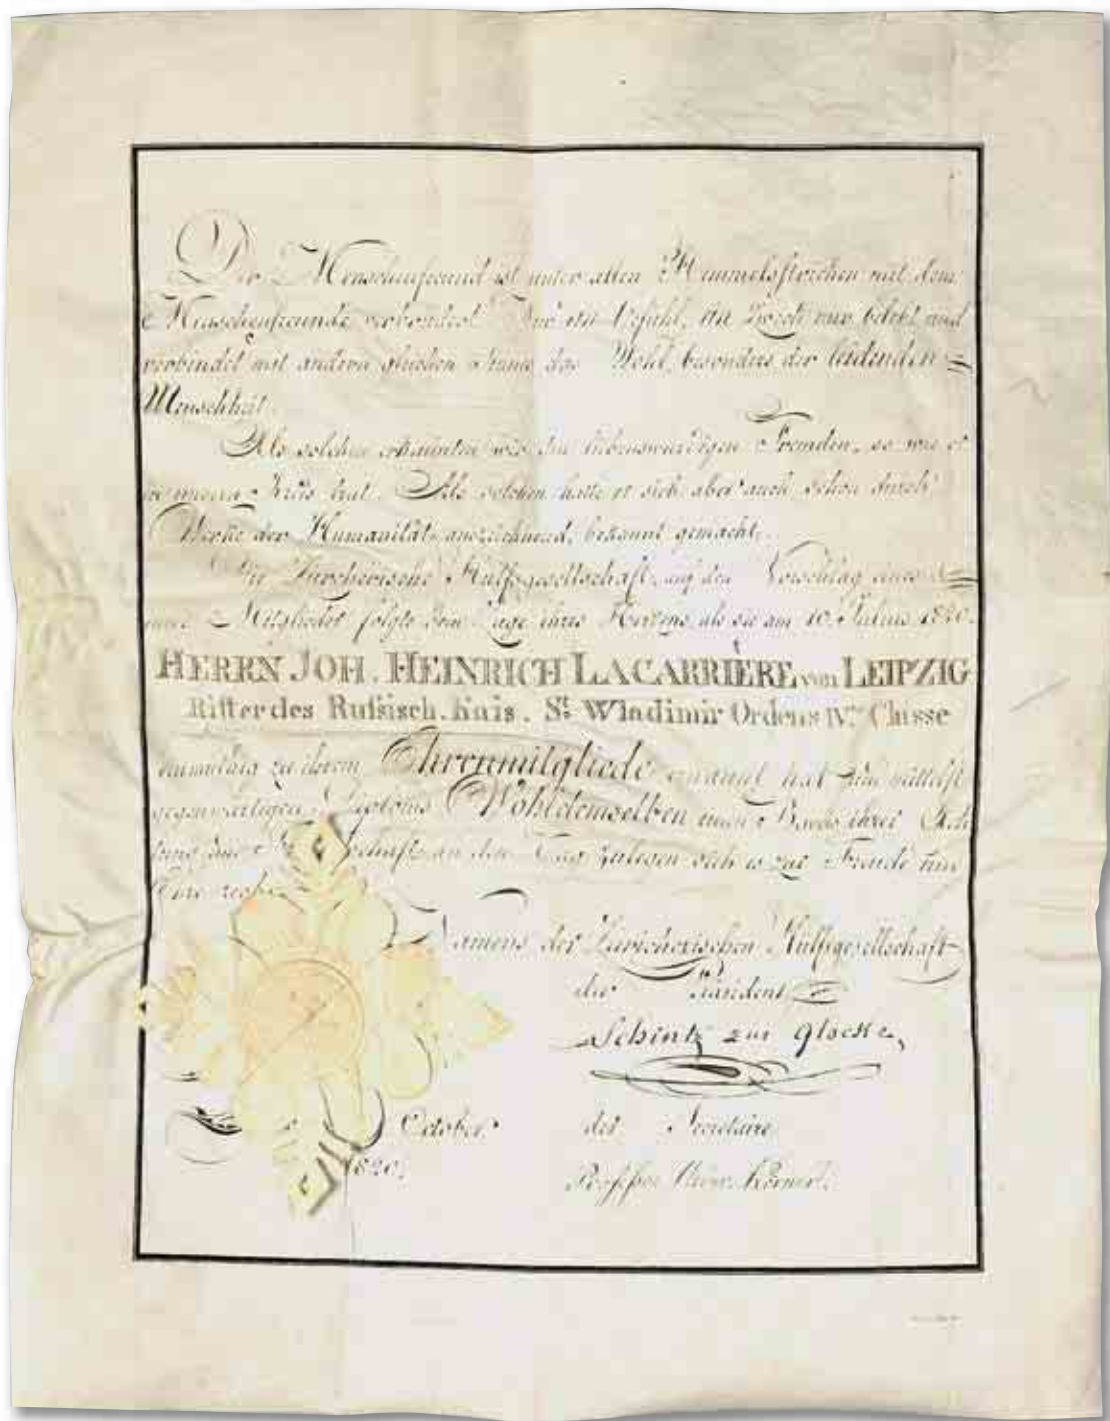 Der Menschenfreund ist unter allen Himmelsstrichen mit dem
Menschenfreunde verbündet. Gefühl, Zweck nur belebt und
verbindet mit andern gleichen Sinns das Wohl, besonders der leidenden
Menschheit.
Als solchen erkannten wir den liebenswürdigen Fremden, so wie er
in unsern Kreis trat. Als solchen hatte er sich aber auch schon durch
Werke der Humanität auszeichnend, bekannt gemacht.
Die Zürcherische Hülfsgesellschaft auf den Vorschlag eines
Mitglieder folgte dem Zuge ihres Herzens als sie am 10. Julius 1820.
HERRN JOH. HEINRICH LACARRIÈRE von LEIPZIG
Ritter des Rußisch. Kais. St. Wladimir Ordens IVten Classe
einmüthig zu ihrem Ehrenmitgliede ernannt hat und mittelst
gegenwärtigen Diploms Wohldemselben einen Beweis ihrer
an den Tag zulegen sich es zur Freude und
Ehre
Namens der Zürcherischen Hülfsgesellschaft
der Präsident
Schintz zur Glocke,
October
1820.
der Secretaire
Professor Horner.